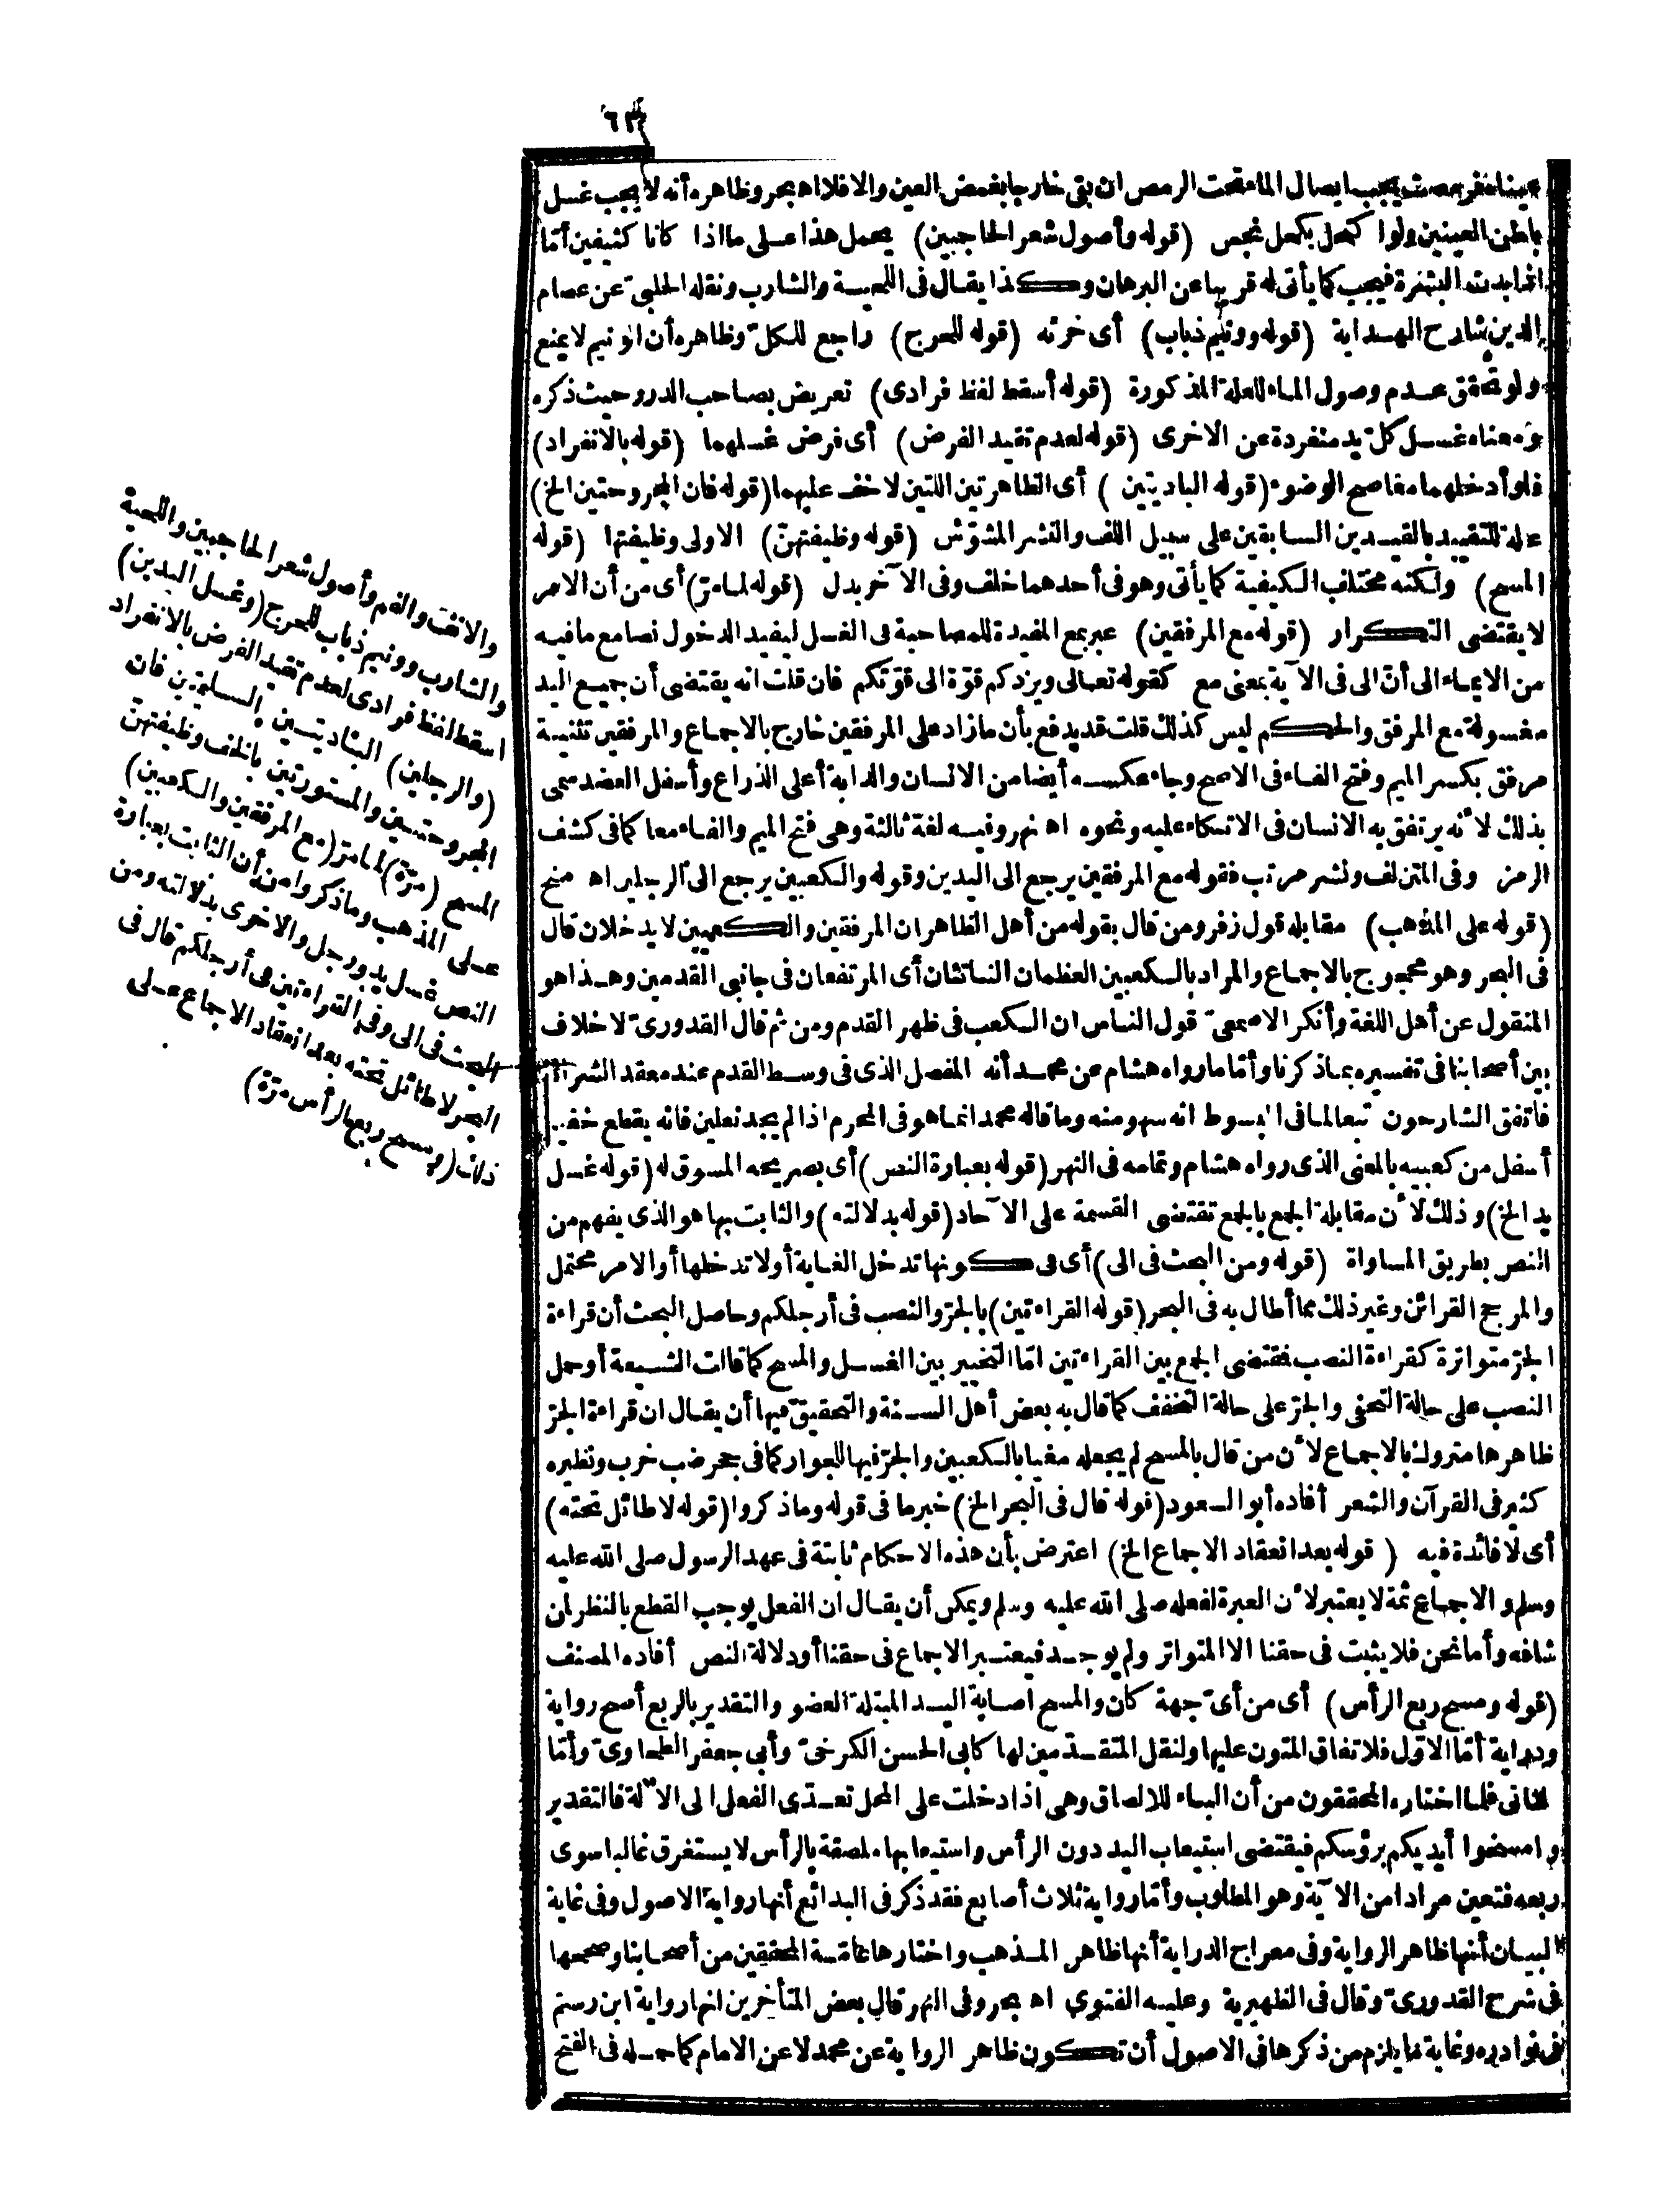 ٦٣
عيناه فرمصت يجب ايصال الماء تحت الرمص ان بقى خارجا بغمض العين والا فلا اه بحر وظاهره أنه لا يجب غسل
باطن العينين ولو اكتحل بكحل نجس (قوله وأصول شعر الحاجبين) يحمل هذا على ما اذا كانا كثيفين أمّا
اذا بدت البشرة فيجب كما يأتى له قريبا عن البرهان وكذا يقال فى اللحية والشارب ونقله الحلبىّ عن عصام
الدين شارح الهداية (قوله وونيم ذباب) أى خرئه (قوله للحرج) راجع للكلّ وظاهره أن الونيم لا يمنع
ولو تحقق عدم وصول الماء للعلة المذكورة (قوله أسقط لفظ فرادى) تعريض بصاحب الدرر حيث ذكره
ومعناه غسل كلّ يد منفردة عن الاخرى (قوله لعدم تقيد الفرض) أى فرض غسلهما (قوله بالانفراد)
فلو أدخلهما معا صح الوضوء (قوله الباديتين) أى الظاهرتين اللتين لا خف عليهما (قوله فان المجروحتين الخ)
علة للتقييد بالقيدين السابقين على سبيل اللف والنشر المشوّش (قوله وظيفتهنّ) الاولى وظيفتها (قوله
المسح) ولكنه مختلف الكيفية كما يأتى وهو فى أحدهما خلف وفى الآخر بدل (قوله لما مرّ) أى من أن الامر
لا يقتضى التكرار (قوله مع المرفقين) عبر بمع المفيدة للمصاحبة فى الغسل ليفيد الدخول نصا مع ما فيه
من الايماء الى أنّ الى فى الآية بمعنى مع كقوله تعالى ويزدكم قوّة الى قوّتكم فان قلت انه يقتضى أن جميع اليد
مغسولة مع المرفق والحكم ليس كذلك قلت قد يدفع بأن ما زاد على المرفقين خارج بالاجماع والمرفقين تثنية
مرفق بكسر الميم وفتح الفاء فى الاصح وجاء عكسه أيضا من الانسان والدابة أعلى الذراع وأسفل العضد سمى
بذلك لأنه يرتفق به الانسان فى الاتكاء عليه ونحوه اه نهر وفيه لغة ثالثة وهى فتح الميم والفاء معا كما فى كشف
الرمز وفى المتن لف ونشر مرتب فقوله مع المرفقين يرجع الى اليدين وقوله والكعبين يرجع الى الرجلين اه منح
(قوله على المذهب) مقابله قول زفر ومن قال بقوله من أهل الظاهر ان المرفقين والكعبين لا يدخلان قال
فى البحر وهو محجوج بالاجماع والمراد بالكعبين العظمان الناتئان أى المرتفعان فى جانبى القدمين وهذا هو
المنقول عن أهل اللغة وأنكر الاصمعىّ قول الناس ان الكعب فى ظهر القدم ومن ثم قال القدورىّ لا خلاف
بين أصحابنا فى تفسيره بما ذكرنا وأمّا ما رواه هشام عن محمد أنه المفصل الذى فى وسط القدم عند معقد الشراك
فاتفق الشارحون تبعا لما فى المبسوط انه سهو منه وما قاله محمد انما هو فى المحرم اذا لم يجد نعلين فانه يقطع خفيه
أسفل من كعبيه بالمعنى الذى رواه هشام وتمامه فى النهر (قوله بعبارة النص) أى بصريحه المسوق له (قوله غسل
يد الخ) وذلك لأن مقابلة الجمع بالجمع تقتضى القسمة على الآحاد (قوله بدلالته) والثابت بها هو الذى يفهم من
النص بطريق المساواة (قوله ومن البحث فى الى) أى فى كونها تدخل الغاية أو لا تدخلها أو الامر محتمل
والمرجح القرائن وغير ذلك مما أطال به فى البحر (قوله القراءتين) بالجرّ والنصب فى أرجلكم وحاصل البحث أن قراءة
الجرّ متواترة كقراءة النصب فقتضى الجمع بين القراءتين امّا التخيير بين الغسل والمسح كما قالت الشيعة أو حمل
النصب على حالة التحفى والجرّ على حالة التخفف كما قال به بعض أهل السنة والتحقيق فيها أن يقال ان قراءة الجرّ
ظاهرها متروك بالاجماع لأن من قال بالمسح لم يجعله مغيا بالكعبين والجرّ فيها للجوار كما فى جحر ضب خرب ونظيره
كثير فى القرآن والشعر أفاده أبو السعود (قوله قال فى البحر الخ) خبر ما فى قوله وما ذكروا (قوله لا طائل تحته)
أى لا فائدة فيه (قوله بعد انعقاد الاجماع الخ) اعترض بأن هذه الاحكام ثابتة فى عهد الرسول صلى الله عليه
وسلم والاجماع ثمة لا يعتبر لأن العبرة لفعله صلى الله عليه وسلم ويمكن أن يقال ان الفعل يوجب القطع بالنظر لمن
شافه وأما نحن فلا يثبت فى حقنا الا المتواتر ولم يوجد فيعتبر الاجماع فى حقنا أو دلالة النص أفاده المصنف
(قوله ومسح ربع الرأس) أى من أىّ جهة كان والمسح اصابة اليد المبتلة العضو والتقدير بالربع أصح رواية
ودراية أمّا الاوّل فلاتفاق المتون عليها ولنقل المتقدّمين لها كابى الحسن الكرخىّ وأبى جعفر الطحاوىّ وأمّا
الثانى فلما اختاره المحققون من أن الباء للالصاق وهى اذا دخلت على المحل تعدّى الفعل الى الآلة فالتقدير
وامسحوا أيديكم برؤسكم فيقتضى استيعاب اليد دون الرأس واستيعابها ملصقة بالرأس لا يستغرق غالبا سوى
ربعه فتعين مرادا من الآية وهو المطلوب وأمّا رواية ثلاث أصابع فقد ذكر فى البدائع أنها رواية الاصول وفى غاية
البيان أنها ظاهر الرواية وفى معراج الدراية أنها ظاهر المذهب واختارها عامّة المحققين من أصحابنا وصححها
فى شرح القدورىّ وقال فى الظهيرية وعليه الفتوى اه بحر وفى النهر قال بعض المتأخرين انها رواية ابن رستم
فى نوادره وغاية ما يلزم من ذكرها فى الاصول أن تكون ظاهر الرواية عن محمد لا عن الامام كما حمله فى الفتح
والانف والفم وأصول شعر الحاجبين واللحية
والشارب وونيم ذباب للحرج (وغسل اليدين)
اسقط لفظ فرادى لعدم تقيد الفرض بالانفراد
(والرجلين) الباديتين السليمتين فان
المجروحتين والمستورتين بالخف وظيفتهنّ
المسح (مرّة) لما مرّ (مع المرفقين والكعبين)
على المذهب وما ذكروا من أن الثابت بعبارة
النص غسل يد ورجل والاخرى بدلالته ومن
البحث فى الى وفى القراءتين فى أرجلكم قال فى
البحر لا طائل تحته بعد انعقاد الاجماع على
ذلك (ومسح ربع الرأس مرّة)